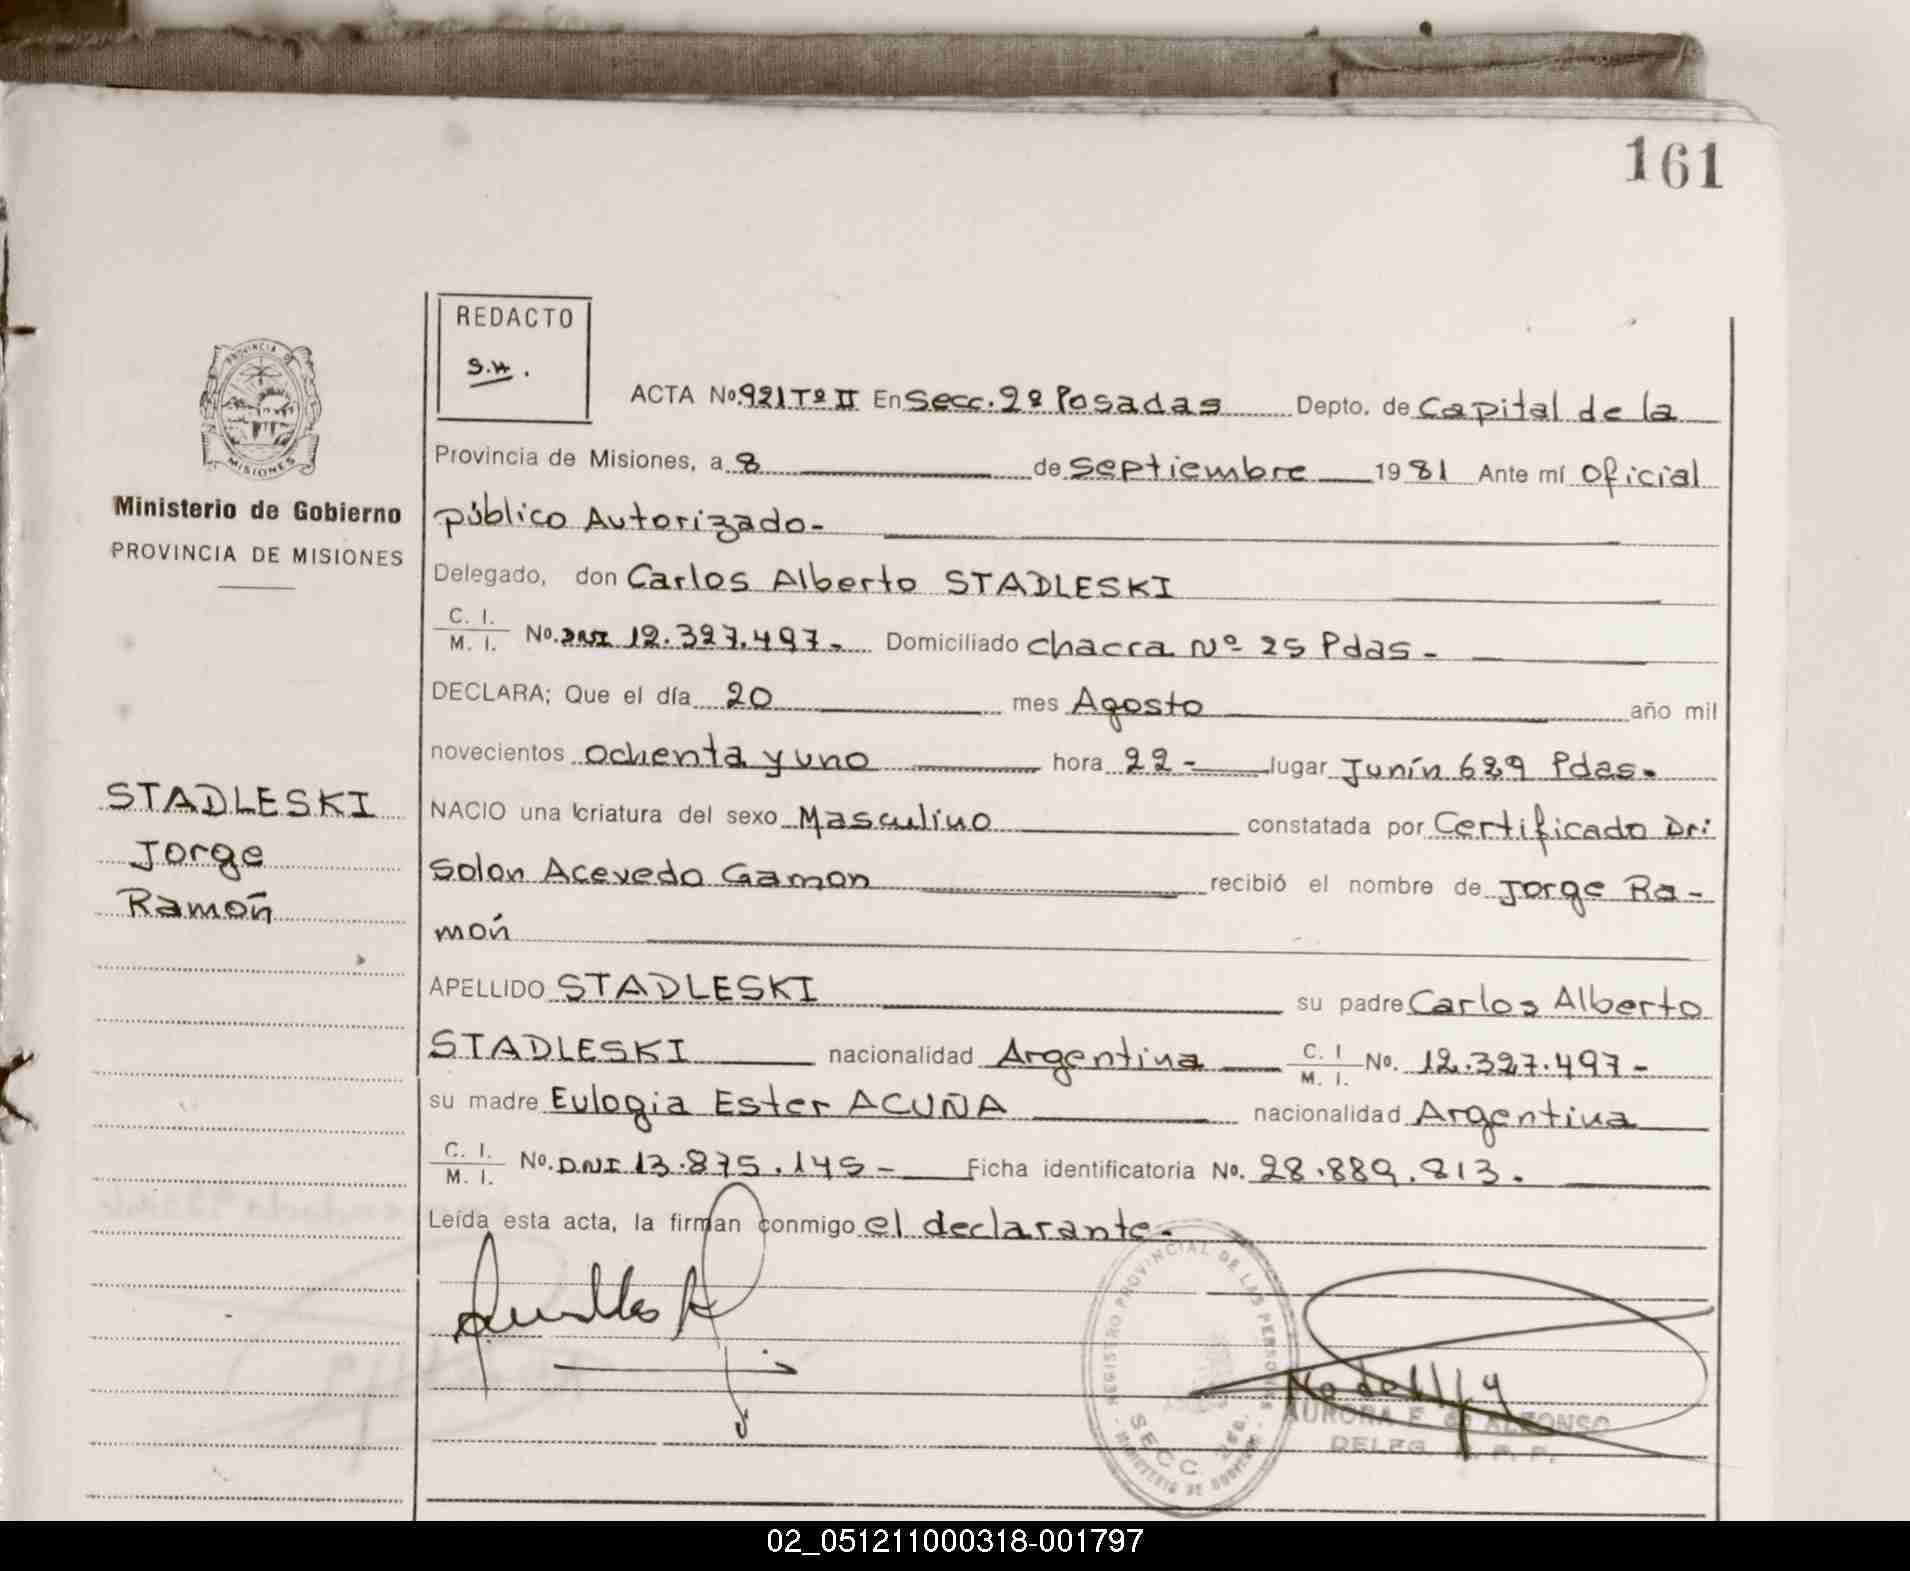 161
REDACTO
S.H.
PROVINCIA DE
MISIONES
Ministerio de Gobierno
PROVINCIA DE MISIONES
STADLESKI
Jorge
Ramón
ACTA No. 921 Tº II En Secc. 2º Posadas Depto. de Capital de la
Provincia de Misiones, a 8 de septiembre 1981 Ante mí oficial
público Autorizado-
Delegado, don Carlos Alberto STADLESKI
C. I. / M. I. No. DNI 12.327.497- Domiciliado chacra Nº 25 Pdas-
DECLARA; Que el día 20 mes Agosto año mil
novecientos ochenta y uno hora 22- lugar Junín 629 Pdas.
NACIO una criatura del sexo Masculino constatada por Certificado Dr:
Solon Acevedo Gamon recibió el nombre de Jorge Ra-
món
APELLIDO STADLESKI su padre Carlos Alberto
STADLESKI nacionalidad Argentina C. I / M. I. No. 12.327.497-
su madre Eulogia Ester ACUÑA nacionalidad Argentina
C. I. / M. I. No. DNI 13.875.145- Ficha identificatoria No. 28.889.813.
Leída esta acta, la firman conmigo el declarante.
REGISTRO PROVINCIAL DE LAS PERSONAS
SECC
MINISTERIO DE GOBIERNO
AURORA F. de ALFONSO
DELEG. R. P. P.
02_051211000318-001797